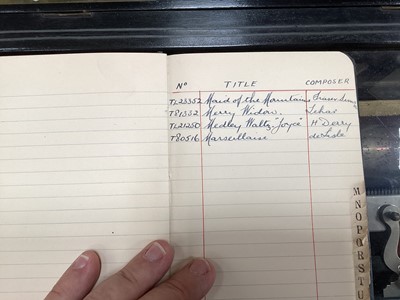 Nº TITLE COMPOSER
TL23352 Maid of the Mountains Fraser-Simson
T81332 Merry Widow. Lehar
TL21250 Medley Waltz "Joyce" H Derry
T80516 Marseillaise de Lisle
M
N
O
P
Q
R
S
T
U